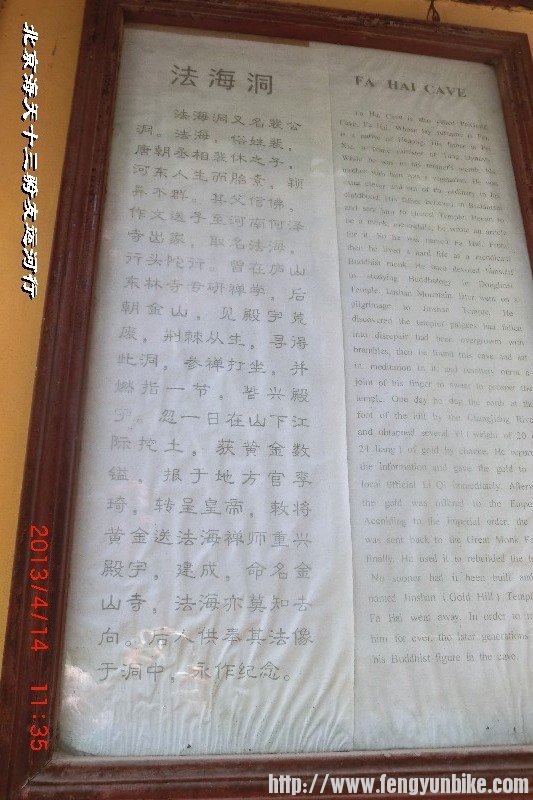 北京海天十三骑女运河行
法海洞
法海洞又名裴公
洞。法海,俗姓裴,
唐朝丞相裴休之子,
河东人生而胎素,颖
异不群。其父信佛,
作文送子至河南何泽
寺出家,取名法海。
行头陀行。曾在庐山
东林寺专研禅学,后
朝金山,见殿宇荒
废,荆棘丛生,寻得
此洞,参禅打坐,并
燃指一节,誓兴殿
宇。忽一日在山下江
际挖土,获黄金数
镒,报于地方官李
琦。转呈皇帝,敕将
黄金送法海禅师重兴
殿宇,建成,命名金
山寺,法海亦莫知去
向。后人供奉其法像
于洞中,永作纪念。
FA HAI CAVE
Fa Hai Cave is also called
Cave. Fa Hai, Whose lay surname is
is a native of Hedong. His father is
Xiu, a prime minister of Tang Dynasty.
While he was in his mother's womb, his
mother was then
was clever and out of the ordinary in his
childhood. His father believed in Buddhism
and sent him to Temple Henan to
be a monk, meanwhile, he wrote an article
for it. So he was named Fa Hai. From
then he lived a hard life as a mendicant
Buddhist monk. He once devoted himself
in studying Buddhology Donglinsi
Temple, Lushan Mountain, later went on a
pilgrimage to Jinshan Temple. He
discovered the temples' palaces had fallen
into disrepair had been overgrown with
brambles, then he found this cave and sat
in meditation in it, and teachers
joint of his finger to swear to prosper the
temple. One day he dug the earth at the
foot of the hill by the Changjiang River
and obtained several Yi (weight of 20 o
24 liang) of gold by chance. He reporte
the information and gave the gold to
local official Li Qi immediately. Afterw
the gold was offered to the Empe
According to the imperial order, the
was sent back to the Great Monk Fa
finally. He used it to rebuilded the te
No sooner had it been built and
named Jinshan (Gold Hill) Templ
Fa Hai went away. In order to m
him for ever, the later generations
his Buddhist figure in the cave.
2013/4/14 11:35
http://www.fengyunbike.com